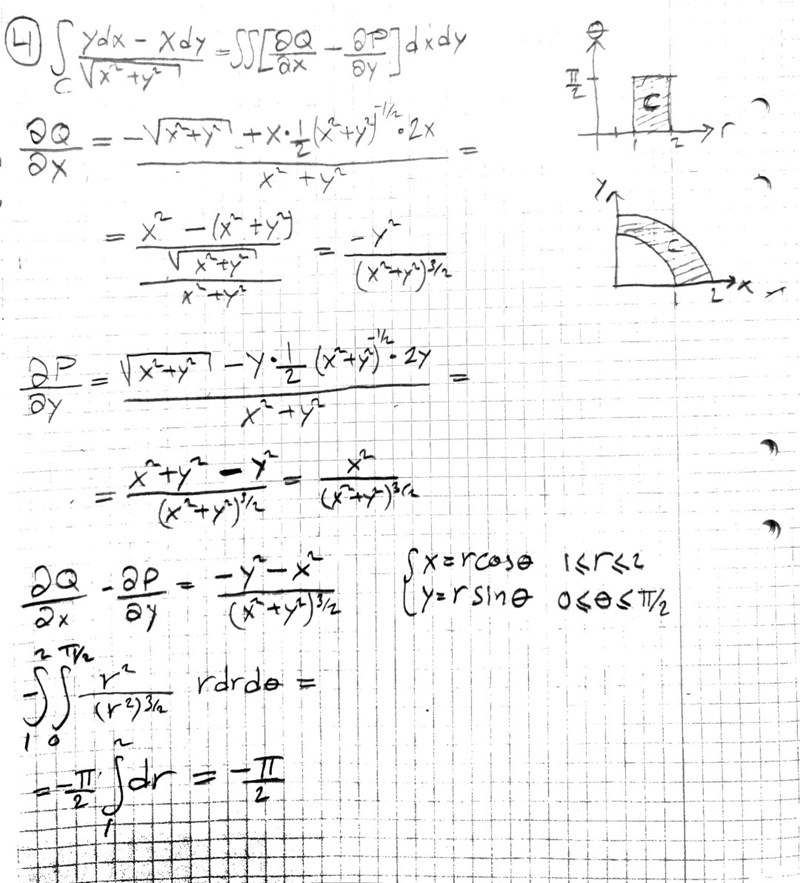 ④ ∫_C (ydx - xdy)/√(x²+y²) = ∬[∂Q/∂x - ∂P/∂y] dxdy
θ
π/2
C
1 2 r
∂Q/∂x = (-√(x²+y²) + x·1/2(x²+y²)^(-1/2)·2x)/(x²+y²) =
= ((x² - (x²+y²))/√(x²+y²))/(x²+y²) = -y²/(x²+y²)^(3/2)
y
C
1 2 x
∂P/∂y = (√(x²+y²) - y·1/2(x²+y²)^(-1/2)·2y)/(x²+y²) =
= (x²+y² - y²)/(x²+y²)^(3/2) = x²/(x²+y²)^(3/2)
∂Q/∂x - ∂P/∂y = (-y² - x²)/(x²+y²)^(3/2)
{x = rcosθ 1≤r≤2
{y = rsinθ 0≤θ≤π/2
-∫_1^2 ∫_0^(π/2) r²/(r²)^(3/2) rdrdθ =
= -π/2 · ∫_1^2 dr = -π/2